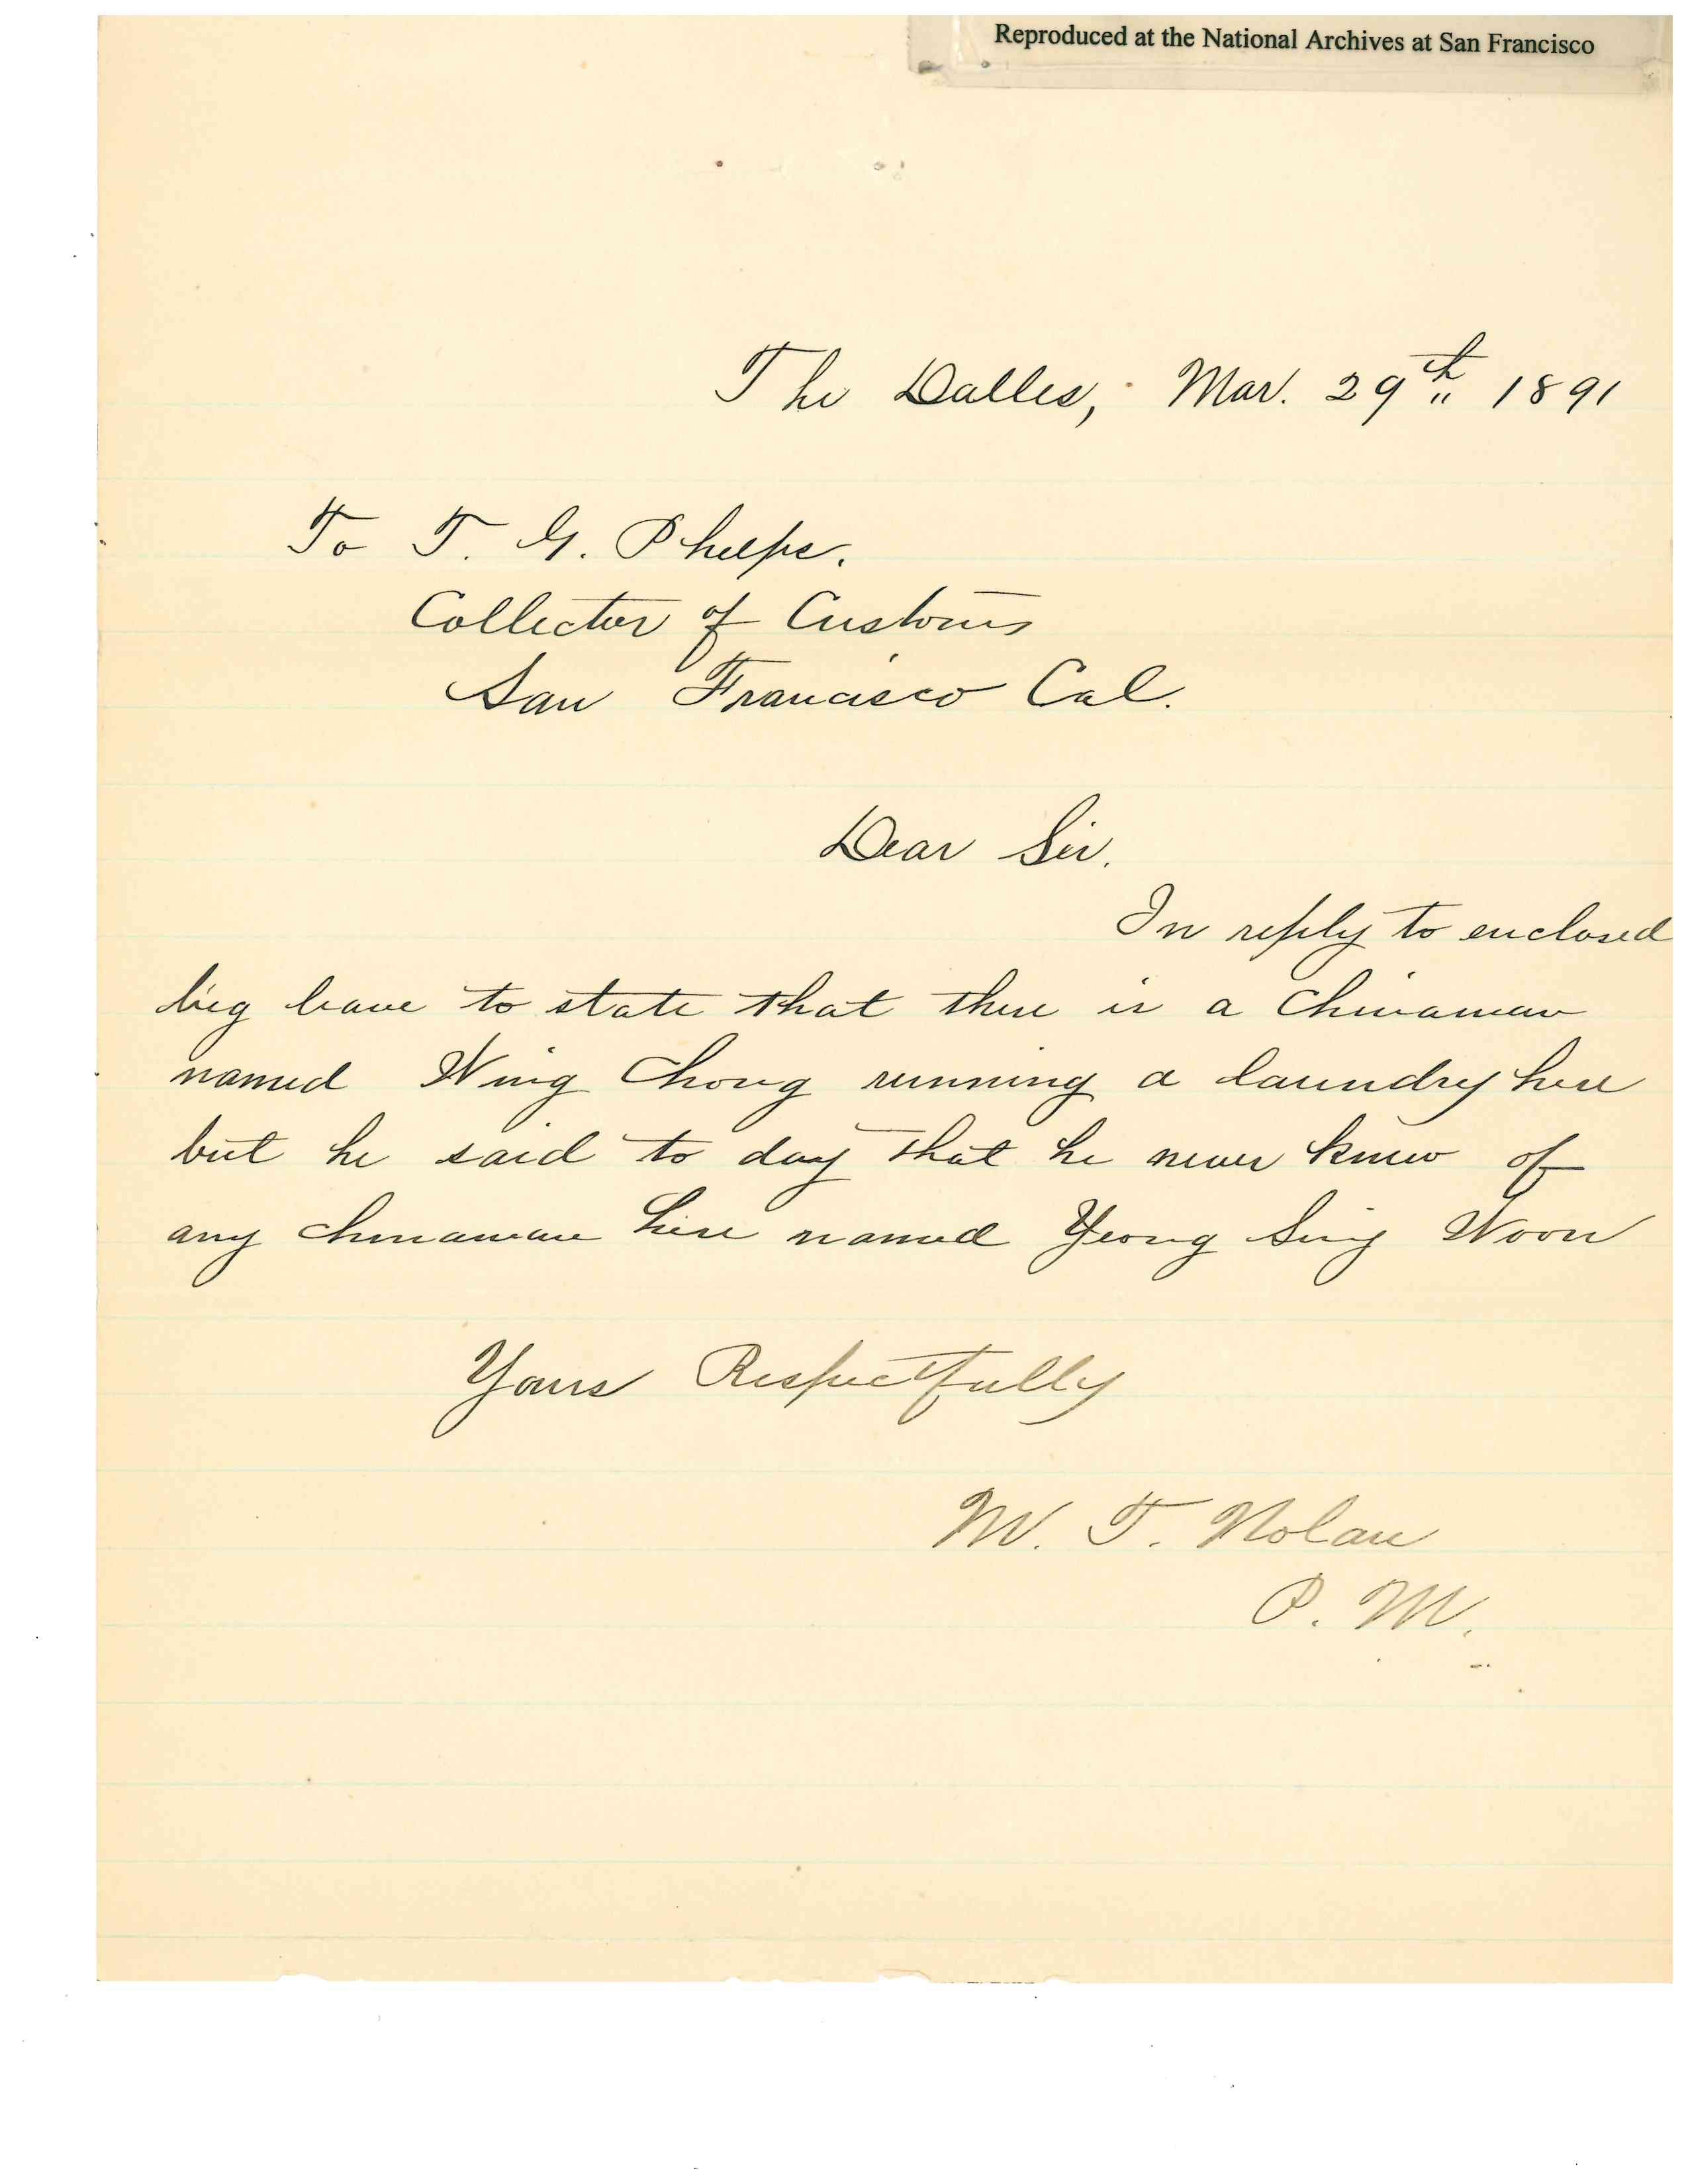 Reproduced at the National Archives at San Francisco
The Dalles, Mar. 29th 1891
To T. G. Phelps.
Collector of Customs
San Francisco Cal.
Dear Sir.
In reply to enclosed
beg leave to state that there is a Chinaman
named Wing Chong running a laundry here
but he said to day that he never knew of
any chinaman here named Yeong Sing Woon
Yours Respectfully
M. T. Nolan
P. M.